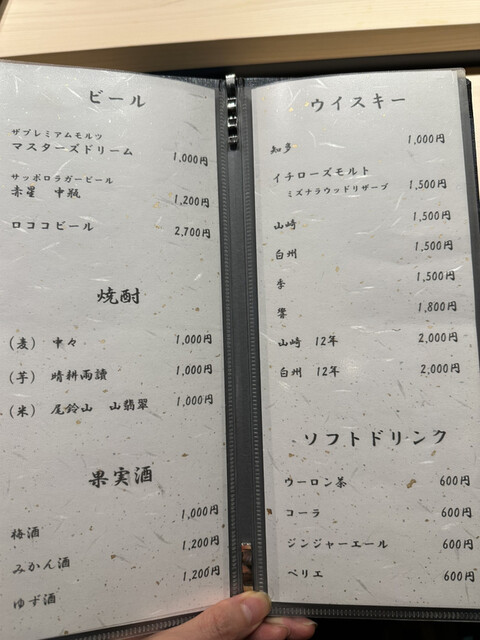 ビール
ザプレミアムモルツ
マスターズドリーム 1,000円
サッポロラガービール
赤星 中瓶 1,200円
ロココビール 2,700円
焼酎
(麦) 中々 1,000円
(芋) 晴耕雨讀 1,000円
(米) 尾鈴山 山翡翠 1,000円
果実酒
梅酒 1,000円
みかん酒 1,200円
ゆず酒 1,200円
ウイスキー
知多 1,000円
イチローズモルト
ミズナラウッドリザーブ 1,500円
山崎 1,500円
白州 1,500円
季 1,500円
響 1,800円
山崎 12年 2,000円
白州 12年 2,000円
ソフトドリンク
ウーロン茶 600円
コーラ 600円
ジンジャーエール 600円
ペリエ 600円